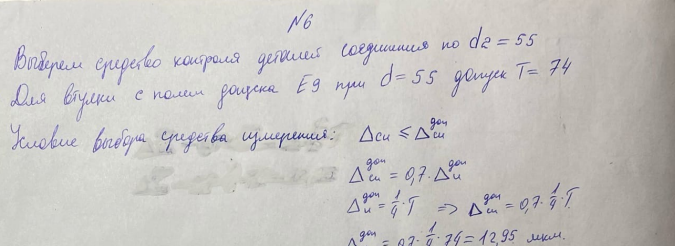 №6
Выберем средство контроля деталей соединения по d2 = 55
Для втулки с полем допуска E9 при d = 55 допуск T = 74
Условие выбора средства измерения: Δси ≤ Δси^доп
Δси^доп = 0,7 · Δи^доп
Δи^доп = 1/4 · T => Δси^доп = 0,7 · 1/4 · T
Δси^доп = 0,7 · 1/4 · 74 = 12,95 мкм.